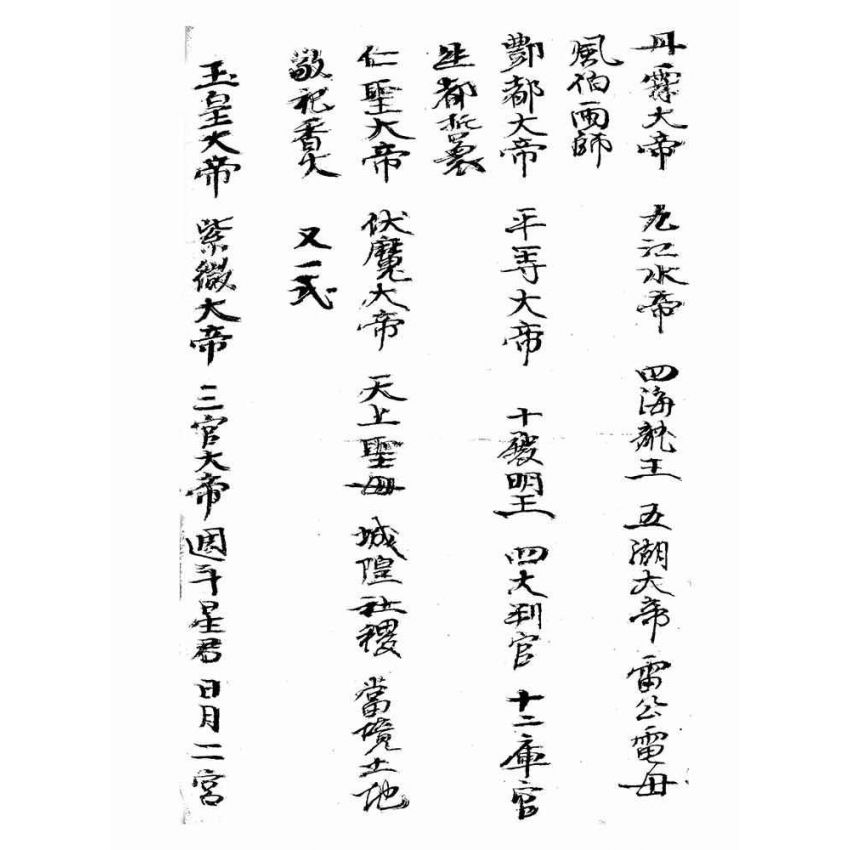 丹霖大帝 九江水帝 四海龍王 五湖大帝 雷公電母
風伯雨師
酆都大帝 平等大帝 十殿明王 四大判官 十二庫官
仁聖大帝 伏魔大帝 天上聖母 城隍社稷 當境土地
敬祀香火 又一式
玉皇大帝 紫微大帝 三官大帝 週斗星君 日月二宮